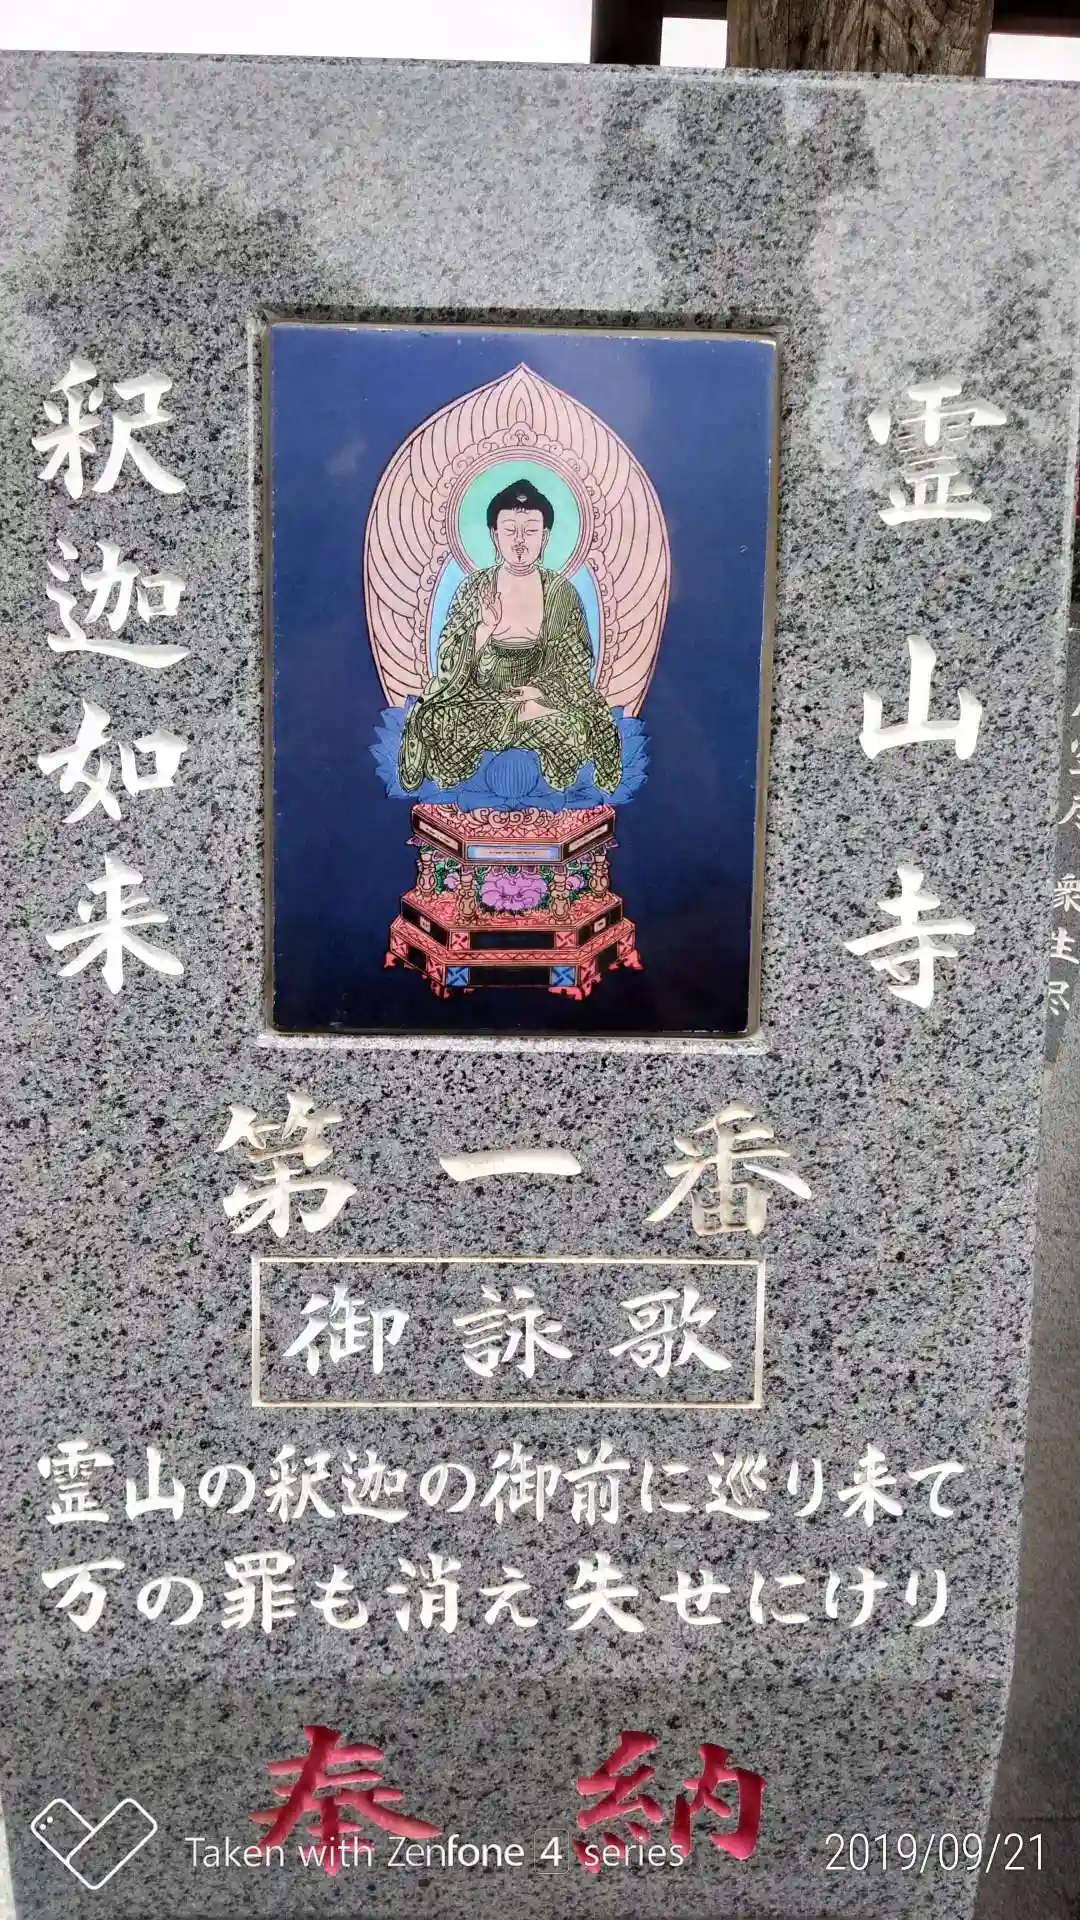 霊山寺
釈迦如来
第一番
御詠歌
霊山の釈迦の御前に巡り来て
万の罪も消え失せにけり
奉納
衆生尽
Taken with Zenfone 4 series
2019/09/21